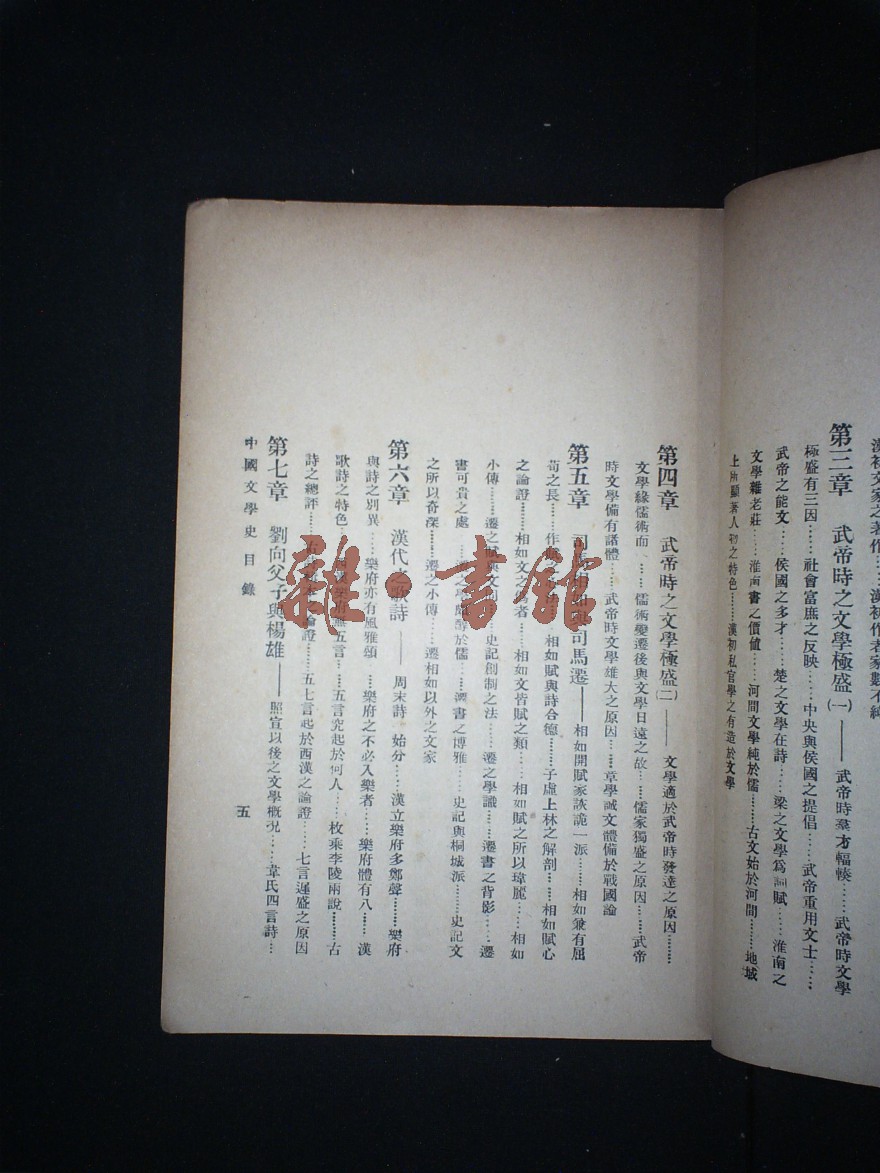 漢初文家之著作……漢初作者家數不純
第三章 武帝時之文學極盛(一)——武帝時羣方輻輳……武帝時文學
極盛有三因……社會富庶之反映……中央與侯國之提倡……武帝重用文士……
武帝之能文……侯國之多才……楚之文學在詩……梁之文學爲詞賦……淮南之
文學雜老莊……淮南書之價値……河間文學純於儒……古文始於河間……地域
上所顯著人物之特色……漢初私官學之有造於文學
第四章 武帝時之文學極盛(二)——文學適於武帝時發達之原因……
文學緣儒術而……儒術變遷後與文學日遠之故……儒家獨盛之原因……武帝
時文學備有諸體……武帝時文學雄大之原因……章學誠文體備於戰國論
第五章 司馬相如與司馬遷——相如開賦家詼詭一派……相如兼有屈
荀之長……作賦之……相如賦與詩合德……子虛上林之解剖……相如賦心
之論證……相如文之僞者……相如文皆賦之類……相如賦之所以瑋麗……相如
小傳……遷之賦與文……史記創制之法……遷之學識……遷書之背影……遷
書可貴之處……之學頗醇於儒……遷書之博雅……史記與桐城派……史記文
之所以奇深……遷之小傳……遷相如以外之文家
第六章 漢代之歌詩——周末詩 始分……漢立樂府多鄭聲……樂府
與詩之別異……樂府亦有風雅頌……樂府之不必入樂者……樂府體有八……漢
歌詩之特色……西漢樂府無五言……五言究起於何人……枚乘李陵兩說……古
詩之總評……論證……五七言起於西漢之論證……七言遲盛之原因
第七章 劉向父子與楊雄——照宣以後之文學概況……韋氏四言詩…
中國文學史 目錄
五
雜·書館